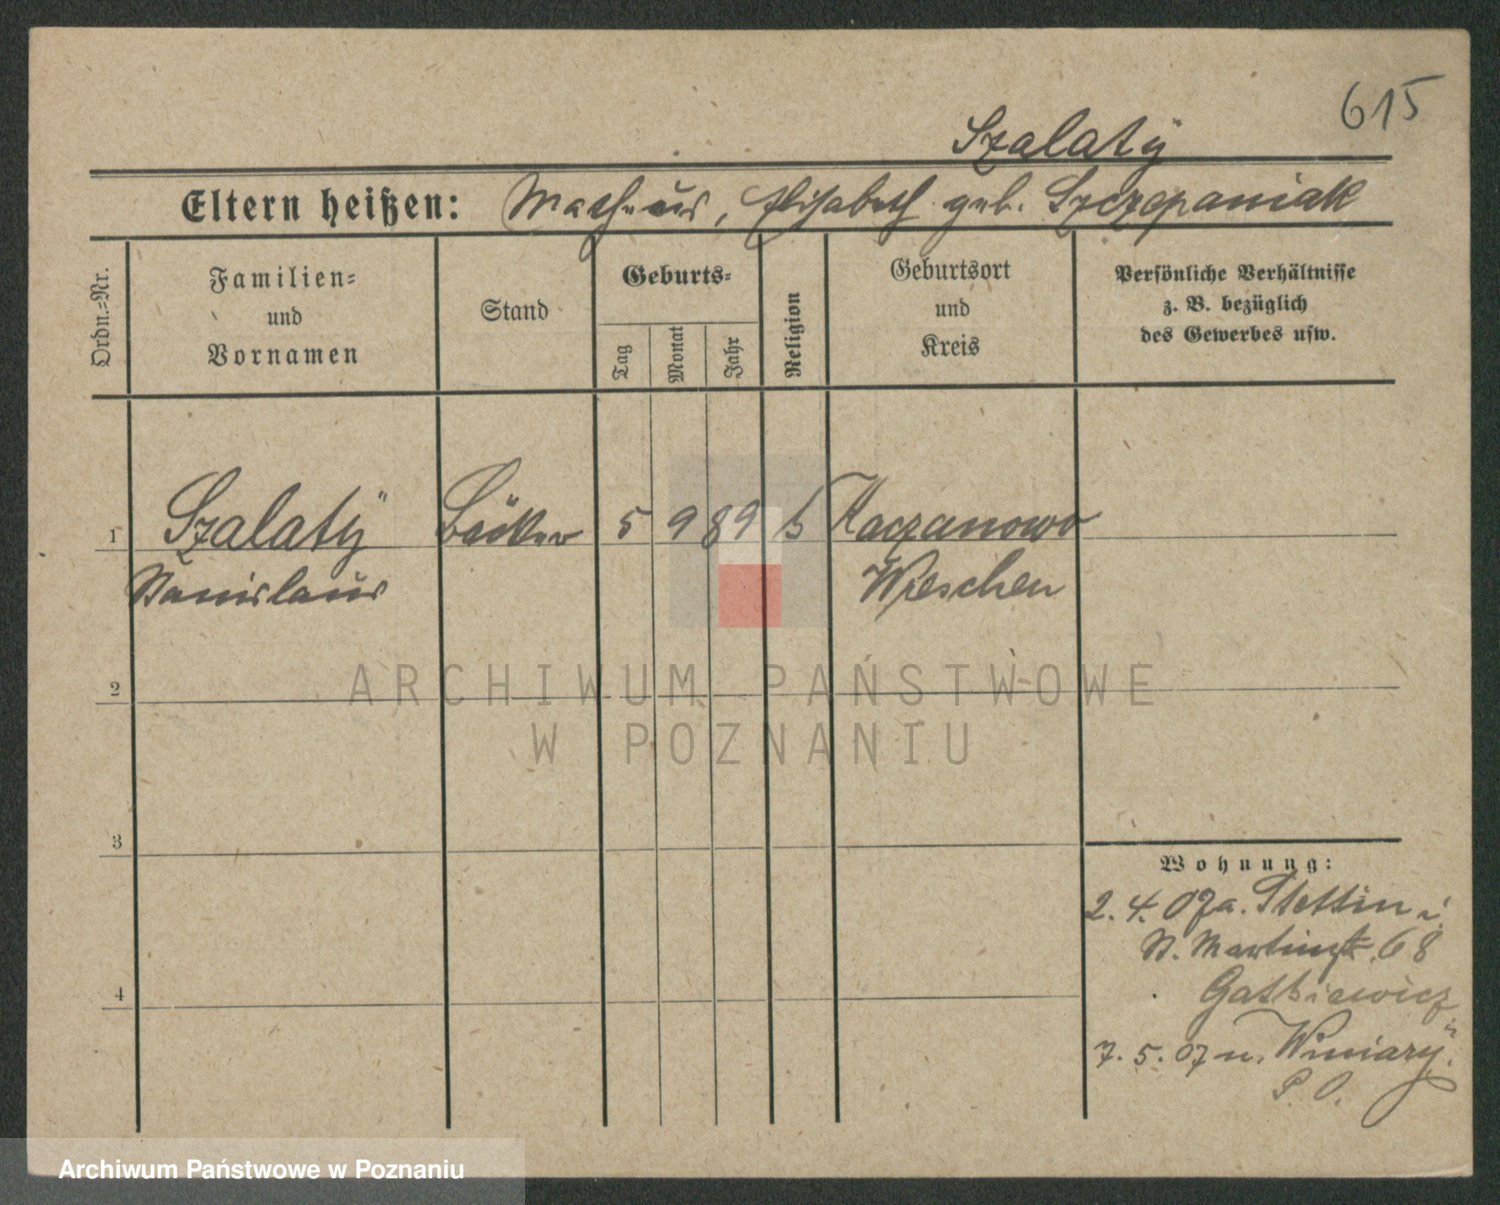 615
Szalatÿ
Eltern heißen: Matheus, Elisabeth geb. Szczepaniak
Ordn.-Nr.
Familien-
und
Vornamen
Stand
Geburts-
Tag
Monat
Jahr
Religion
Geburtsort
und
Kreis
Persönliche Verhältnisse
z. B. bezüglich
des Gewerbes usw.
1 Szalatÿ Bäcker 5 9 89 k Kaczanowo
Stanislaus Wreschen
2
3
4
Wohnung:
2. 4. 07 a. Stettin i.
St. Martinstr. 68
7. 5. 07 n. Winiary
P. O.
ARCHIWUM PAŃSTWOWE
W POZNANIU
Archiwum Państwowe w Poznaniu